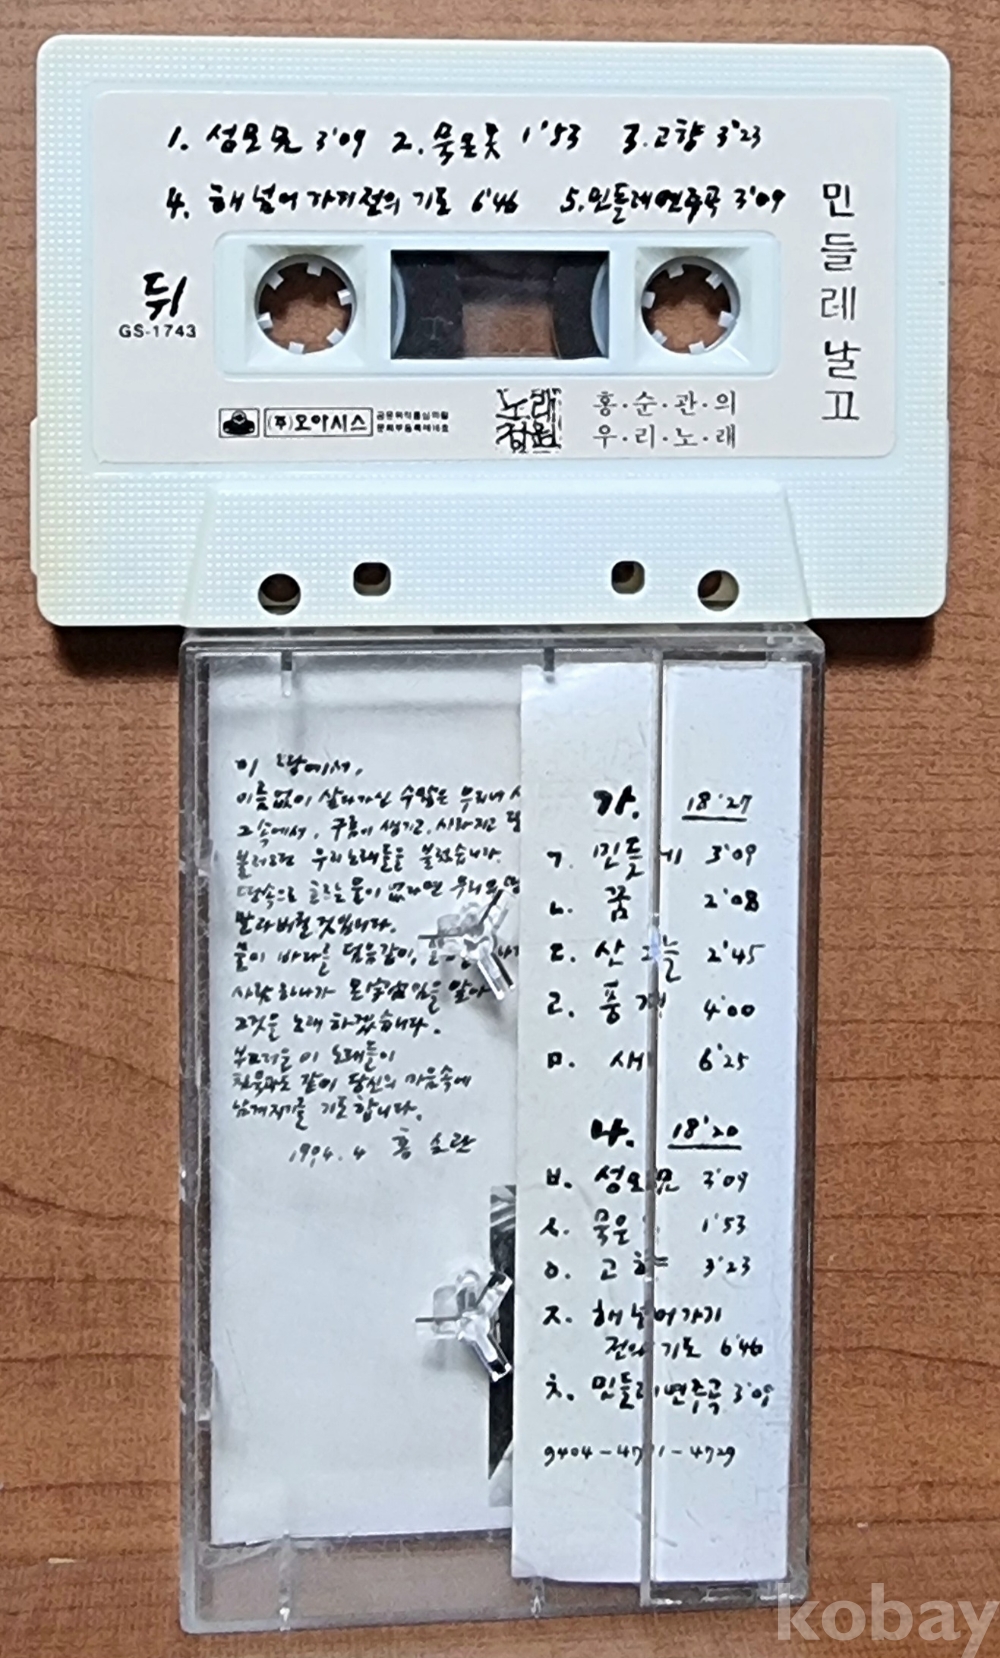 1. 성모몃 3'09 2. 묵은꽃 1'53 3. 고향 3'23
4. 해 넘어 가기전의 기도 6'46 5. 민들레연주곡 3'09
민들레날고
뒤
GS-1743
(주)오아시스
노래
정원
홍·순·관·의
우·리·노·래
이 땅에서,
이름없이 살다가신 수많은 우리네
그 속에서, 구름이 생기고, 사라지고
불려오던 우리노래들을 불렀습니다.
땅속으로 흐르는 물이 없다면 우리의 땅
말라버릴 것입니다.
물이 바다를 덮음같이,
사람하나가 온宇宙임을 알아
그것을 노래 하겠습니다.
부끄러운 이 노래들이
침묵과도 같이 당신의 마음속에
남겨지기를 기도합니다.
1994. 4 홍순관
가. 18'27
ㄱ. 민들레 3'09
ㄴ. 꿈 2'08
ㄷ. 산 늘 2'45
ㄹ. 풍경 4'00
ㅁ. 새 6'25
나. 18'20
ㅂ. 성모몃 3'09
ㅅ. 묵은 1'53
ㅇ. 고향 3'23
ㅈ. 해 넘어가기
전의 기도 6'46
ㅊ. 민들레 연주곡 3'09
9404-4711-4729
kobay